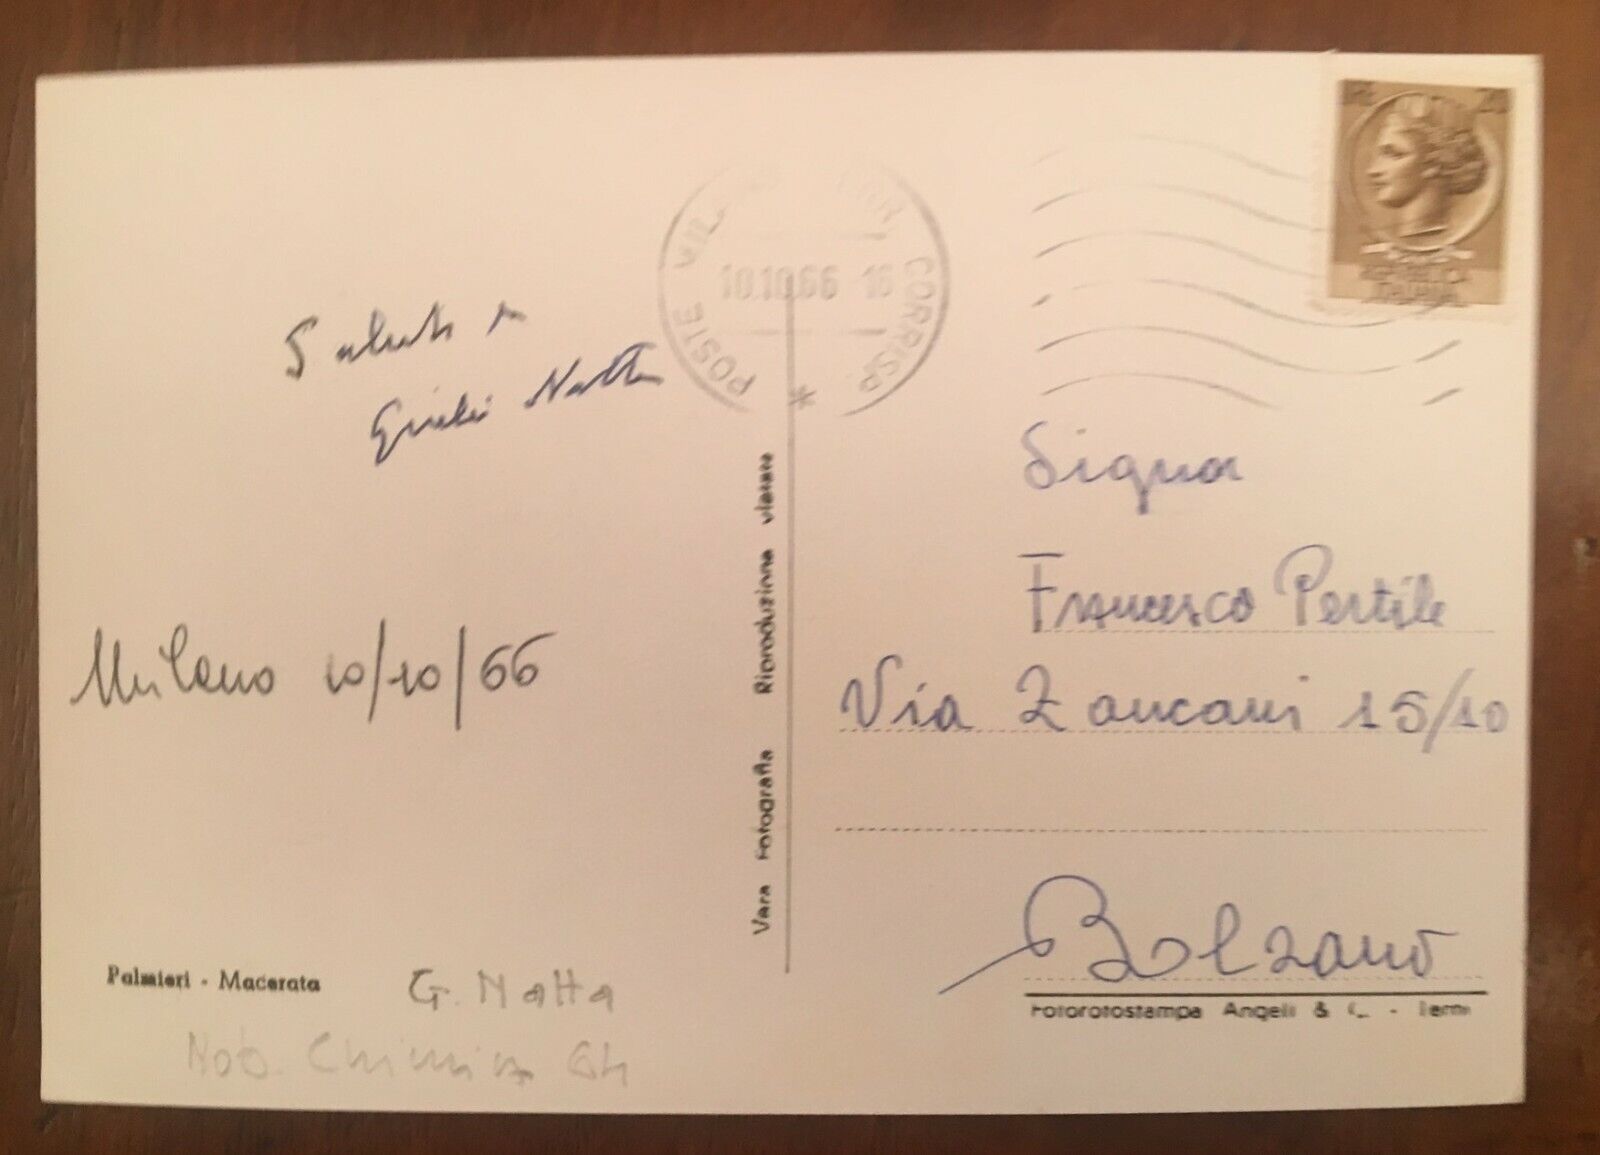 POSTE MILANO CORRISP
10.10.66 16
REPUBBLICA
ITALIANA
Saluti
Giulio Natta
Milano 10/10/66
Palmieri - Macerata
G. Natta
Nob. Chimica 64
Vera Fotografia Riproduzione vietata
Signor
Francesco Pertile
Via Zancani 15/10
Bolzano
Fotorotostampa Angeli & C. - Terni